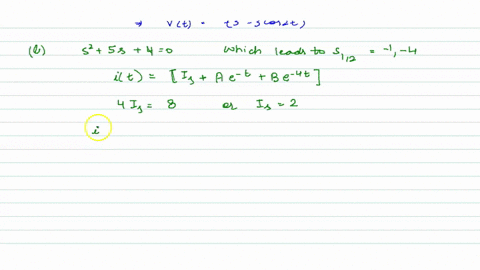 ⇒ V(t) = (5 - 5cos2t)
(b) s² + 5s + 4 = 0 which leads to s₁,₂ = -1, -4
i(t) = [I_s + A e^{-t} + B e^{-4t}]
4 I_s = 8 or I_s = 2
i